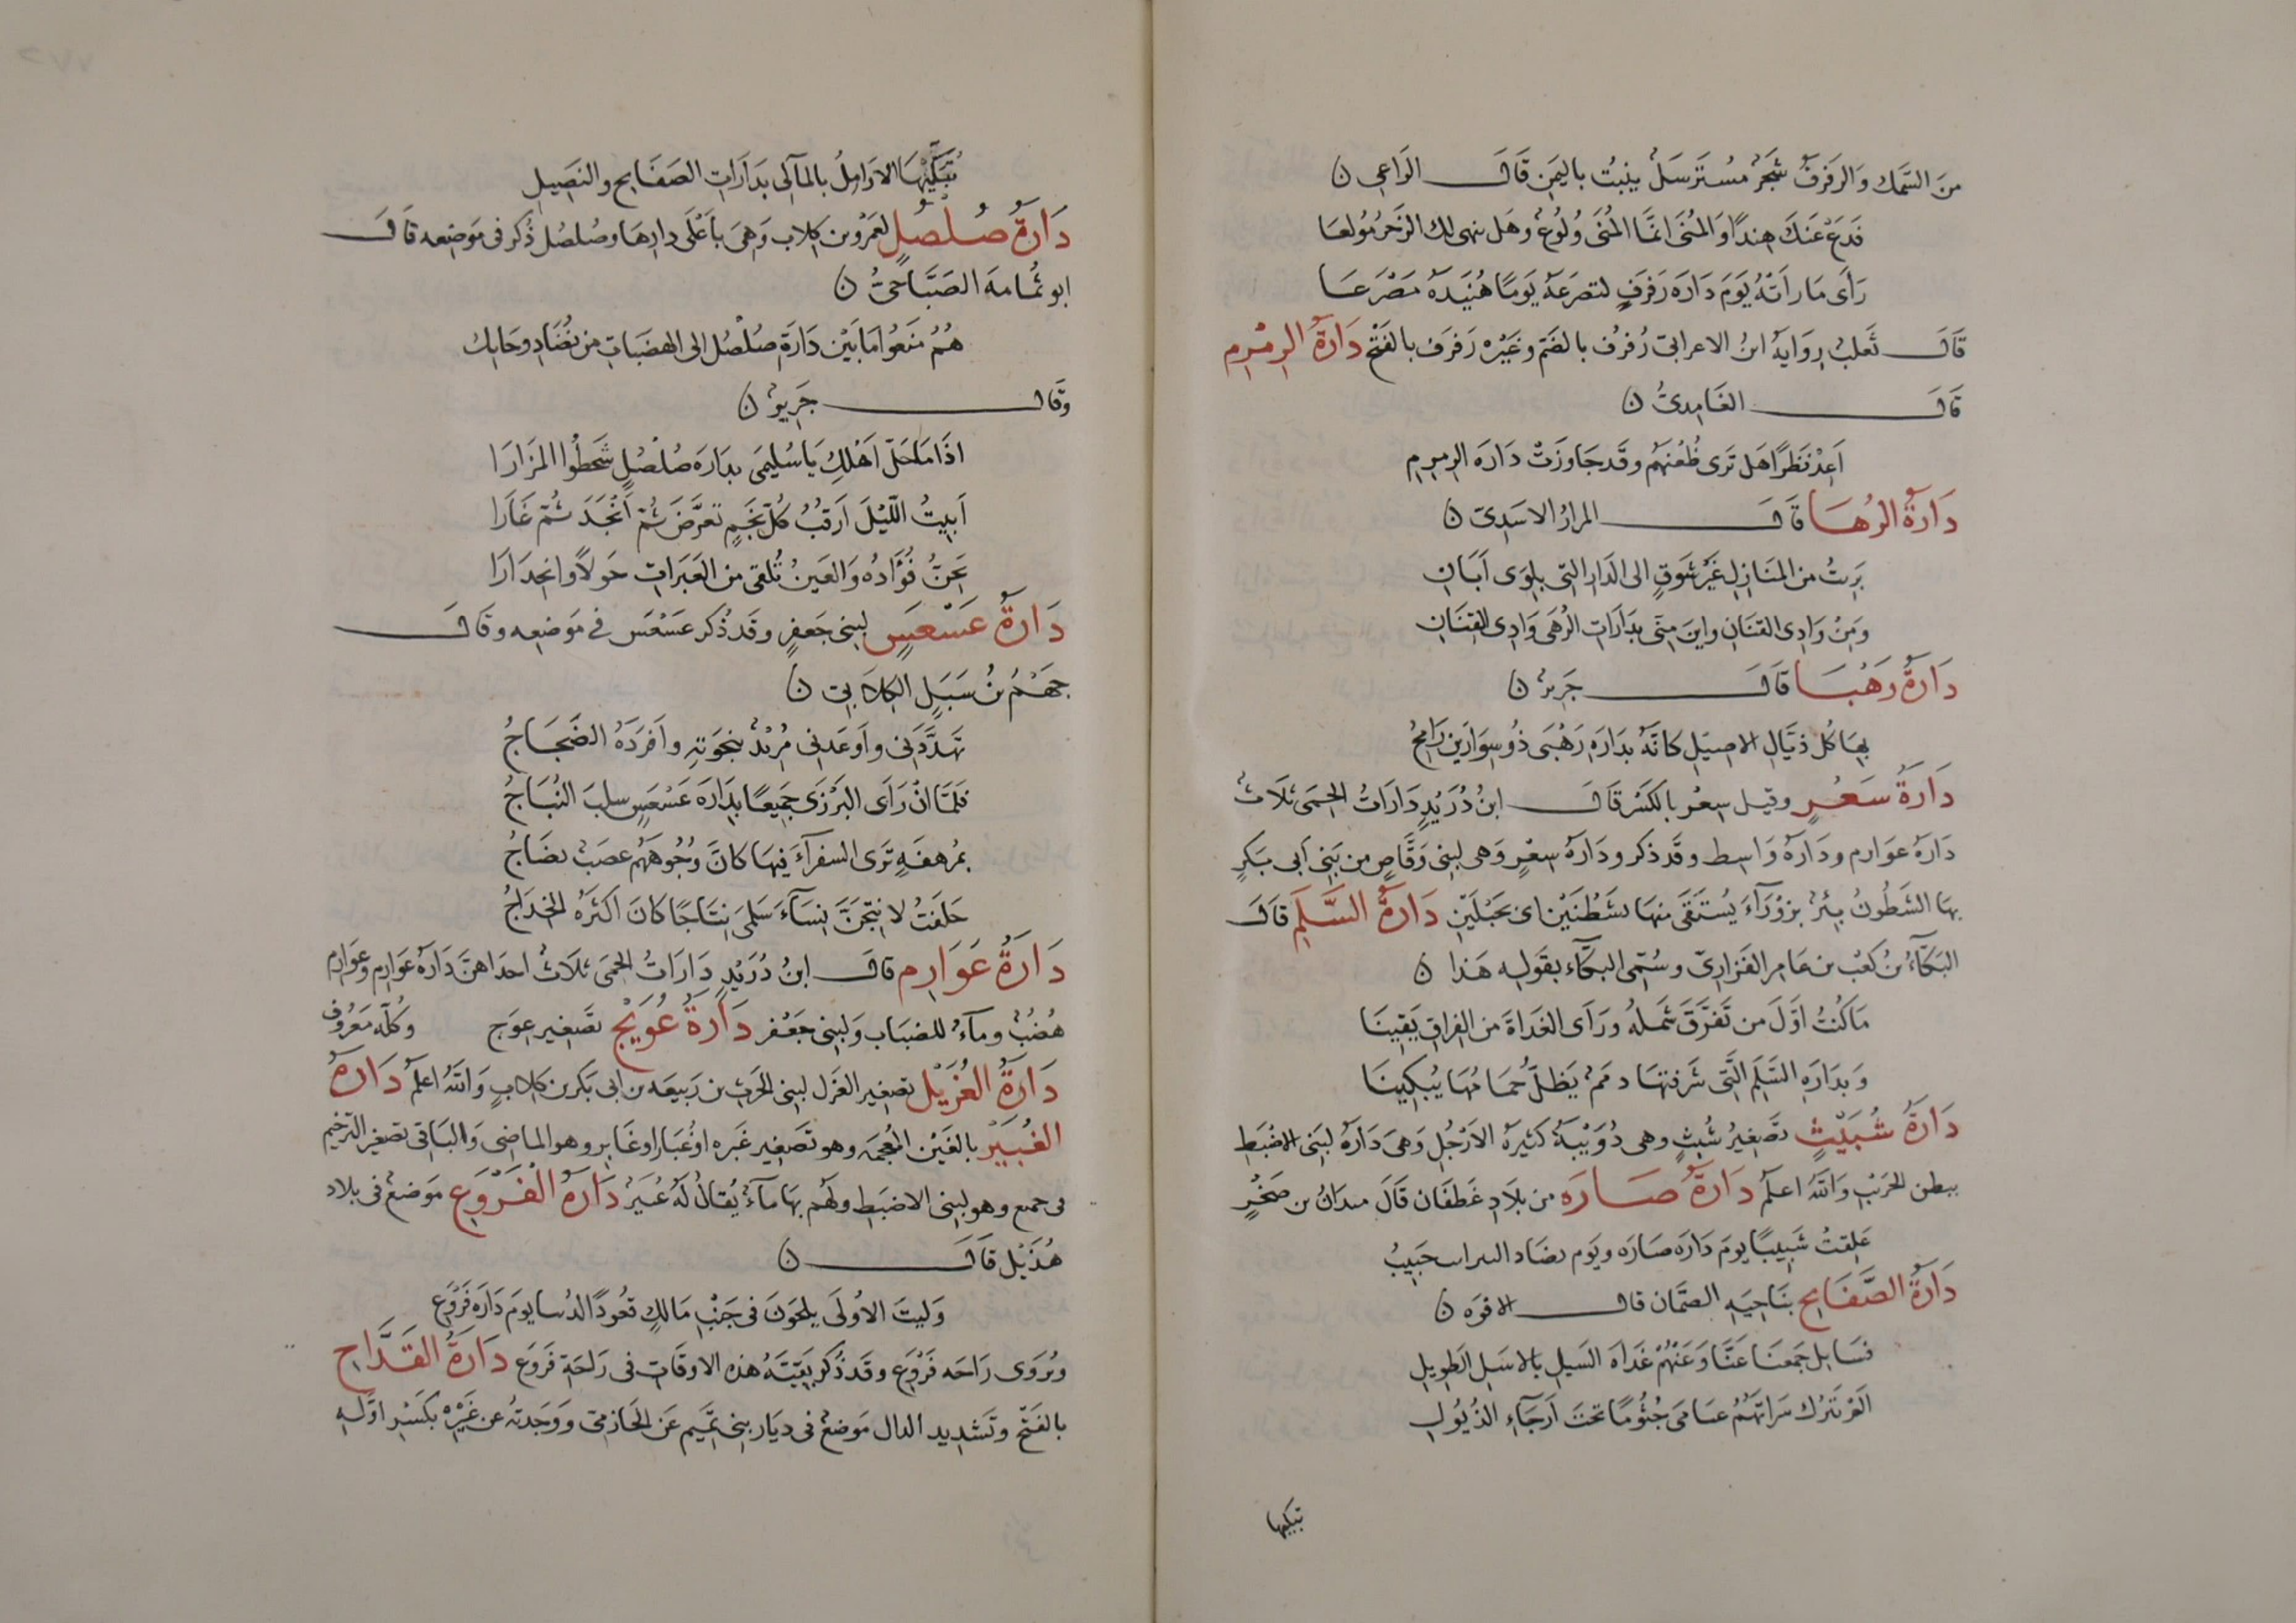 من السَّمَك وَالرَفرَفُ شَجَرٌ مُسْتَرسَلٌ ينبُت باليَمن قَالَ الرَاعى ن
فَدَع عَنكَ هِندًا وَالمُنَى انمَّا المُنَى وُلُوعٌ وَهَل ينهى لك الزَجرُ مُولعَا
رَأى مَا رأتهُ يَومَ دَارَه رَفرَفٍ لتصرَعَهُ يَومًا هُنَيدَهُ مَصْرَعَا
قَالَ ثَعلبُ رِوَايَة ابنُ الاعرابىّ رُفرُف بالضَم وغيَره رَفرَف بالفَتْح دَارَةُ الرِمْرِم
قَالَ الغَامِدىُّ ن
اَعِدْ نَظَرًا هَل تَرى ظُعْنهَمُ وقَد جَاوَزَتْ دَارَه الرمرِمِ
دَارَةُ الرُهَا قَالَ المرارُ الاسَدِىّ ن
بَرِئتُ من المنَازِلِ غَيَر شَوقٍ الى الدَار التِى بِلِوَى أبَانِ
وَمِنْ وَادِى القنَانِ واينَ مِنِّى بِدَارَاتِ الرُهَى وَادِى القِنَانِ
دَارَةُ رَهْبَا قَالَ جَريرٌ ن
بِهَا كُل ذيَّالِ الاصيَلِ كانّهُ بدَارَه رَهْبَى ذُو سِوَارَين رَامحُ
دَارَةُ سَعْرٍ وقيل سِعْر بالكَسْر قَالَ ابنُ دُرَيْدٍ دَارَاتُ الحِمَى ثلَاثٌ
دَارَة عَوَارم ودَارَة وَاسِط وقَد ذكر ودَارَة سِعْرٍ وَهى لبَنِى وَقَّاصٍ من بَنِى أبى بَكرٍ
بهَا الشَطُونُ بِئرٌ بزَوْرَآءَ يُسْتَقَى منهَا بشَطَنَيْن اى بحَبْلَيْنِ دَارَةُ السَّلَمِ قَالَ
البَكَّآءُ بنُ كعْب بن عَامِر الفَزَارِىّ وسُمّى البكَّآء بقَولِهِ هَذا ن
مَا كُنتُ اوَّلَ من تَفَرَّقَ شَملُهُ ورَأى الغَدَاةَ من الفِراقِ يَقِينَا
وَبدَارَه السَلَمِ الَّتِى شَرقتهَا دمَمٌ يَظَلُّ حَمَامُهَا يُبْكِينَا
دَارَةُ شُبَيْثٍ تَصْغِيرُ شَبَثٍ وهى دُوَيْبَةٌ كثيرَةُ الاَرْجُلِ وَهى دَارَة لبَنِى الاضْبَطِ
ببطن الحَرِيْبِ وَالله اعلَمُ دَارَةُ صَارَه من بلَادِ غَطَفَان قَالَ ميدَانُ بن صَخْرٍ
عَلِقتُ شَبِيبًا يومَ دَارَه صَارَه ويَوم نضَاد حَبِيبُ
دَارَةُ الصَّفَايح بنَاحِيَهِ الصَّمَّان قَالَ الافوَه ن
فسَايل جَمعنَا عَنَّا وَعَنْهُمْ غَدَاه السَيلِ بالاسَلِ الطَوِيلِ
اَلَمْ نَترُك سَرَاتَهُمُ عيَامَى جُثُومًا تحتَ أرجَآءِ الذُيُولِ
تبكيها
تُبَكِّيْهَا الارَامِلُ بالمآلى بدَارَاتِ الصَفَايحِ والنَصِيلِ
دَارَةُ صُلصُلٍ لعَمْرو بن كِلاب وَهِىَ بأَعْلَى دارِهَا وصُلصُل ذُكر فى مَوضِعه قَالَ
ابو ثُمامة الصَبَّاحىُّ ن
هُمُ منَعُوا مَا بَيْنَ دَارَةِ صُلصُل الى الهضَباتِ من نضَادٍ وحَايك
وقَال جَرِيرٌ ن
اذَا مَا حَلّ اَهْلكِ يَا سُلَيمَى بدَارَه صُلصُلٍ شحَطُوا المزَارَا
اَبِيتُ اللّيْلَ اَرقُبُ كُلَّ نَجمٍ تعَرَّضَ ثُمّ اَنْجَدَ ثُمّ غَارَا
يَحِنُّ فُؤَادُه وَالعَينُ تُلقى من العَبَراتِ حَولًا وانحِدَارَا
دَارَةُ عَسْعَسٍ لبنِى جَعفرٍ وقَد ذُكر عَسْعَس فى مَوضعِه وقَالَ
جَهْمُ بنُ سَبَلٍ الكِلابىّ ن
تَهَدَّدَنِى واَوعَدنِى مُرَيدٌ بنخوَتهِ وأفرَدَهُ الضَجَاجُ
فلمَّا انْ رَأى البَزرَى جمَيعًا بدَارَه عَسْعَسٍ سلبَ النُبَاحُ
بمُرهفَةٍ تَرَى السفرآءَ فيهَا كانَّ وُجُوهَهُمُ عصَبٌ نضَاجُ
حَلَفتُ لانتِجَنَّ نِسَآءَ سَلمَى نتَاجًا كانَ اكثَرُهُ الخِدَاجُ
دَارَةُ عَوَارِم قَالَ ابنُ دُرَيْدٍ دَارَاتُ الحِمَى ثلَاثٌ احدَاهنَّ دَارَه عَوَارِم وعَوَارِم
هُضْبٌ ومآءٌ للضبَاب وَلبَنِى جَعْفر دَارَةُ عُوَيْجٍ تَصْغِير عِوَج وكُلّه مَعْرُوف
دَارَةُ الغُزَيْل تصغير الغَزَل لبنِى الحَرِث بن رَبِيعَه بن ابى بَكر بن كلابٍ وَالله اعلَمُ دَارَةُ
الغُبَيْر بالغَيْن المُعجَمه وهو تَصْغِير غَبَره او غُبَار او غَابِر وهو الماضِى وَالبَاقِى تصغير الترخيم
فى جميع وهو لبنِى الاضبَط ولَهُم بهَا مآءٌ يُقالُ لَهُ غُبَيْر دَارَةُ الفَرْوَعِ مَوضعٌ فى بلاد
هُذَيْل قَالَ ن
وَليتَ الاُولَى يلحَوْنَ فى جَنْبِ مَالكٍ قعُودًا لدُنا يومَ دَارَه فَرْوَعِ
ويُروَى رَاحَه فَرْوَع وقَد ذُكر بَقِيَّهُ هذه الاوقَات فى رَاحَةِ فَروَع دَارَةُ القَدَّاح
بالفَتْح وتَشدِيد الدال مَوضعٌ فى ديَار بنِى تمَيم عَن الحَازمِىّ ووَجَدتهُ عن غَيْره بكَسْر اوَّلهِ